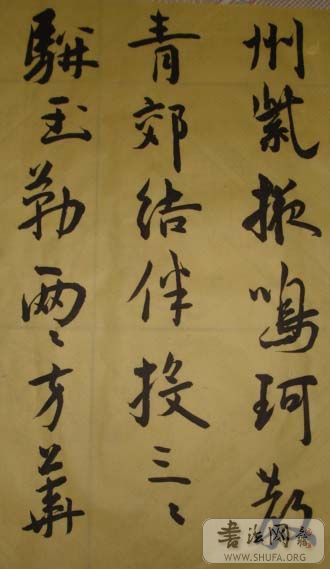 州紫掖鳴珂散
青郊结伴投三々
駢玉勒兩々方華
書法网
WWW.SHUFA.ORG